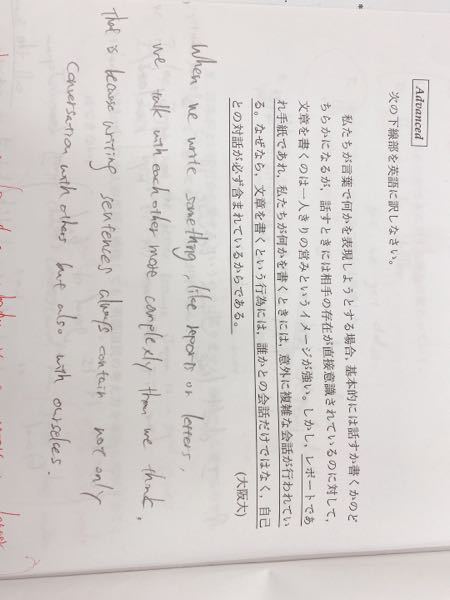 Advanced
次の下線部を英語に訳しなさい。
私たちが言葉で何かを表現しようとする場合，基本的には話すか書くかのど
ちらかになるが，話すときには相手の存在が直接意識されているのに対して，
文章を書くのは一人きりの営みというイメージが強い。しかし，レポートであ
れ手紙であれ，私たちが何かを書くときには，意外に複雑な会話が行われてい
る。なぜなら，文章を書くという行為には，誰かとの会話だけではなく，自己
との対話が必ず含まれているからである。
(大阪大)
When we write something, like reports or letters,
we talk with each other more complexly than we think.
That is because writing sentences always contain not only
conversation with others but also with ourselves.